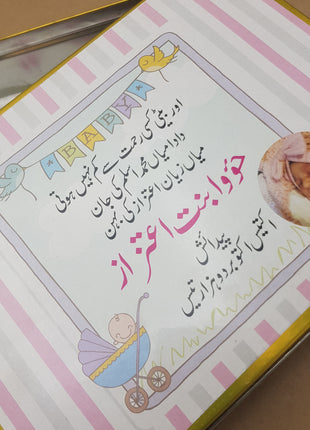 BABY
اور بیٹی کسی رحمت سے کم نہیں ہوتی
دادا میاں محمد اسلم کی جان
میاں زیان اعتزاز کی بہن
حوّا بنت اعتزاز
پیدائش
اکتیس اکتوبر دو ہزار تیئس